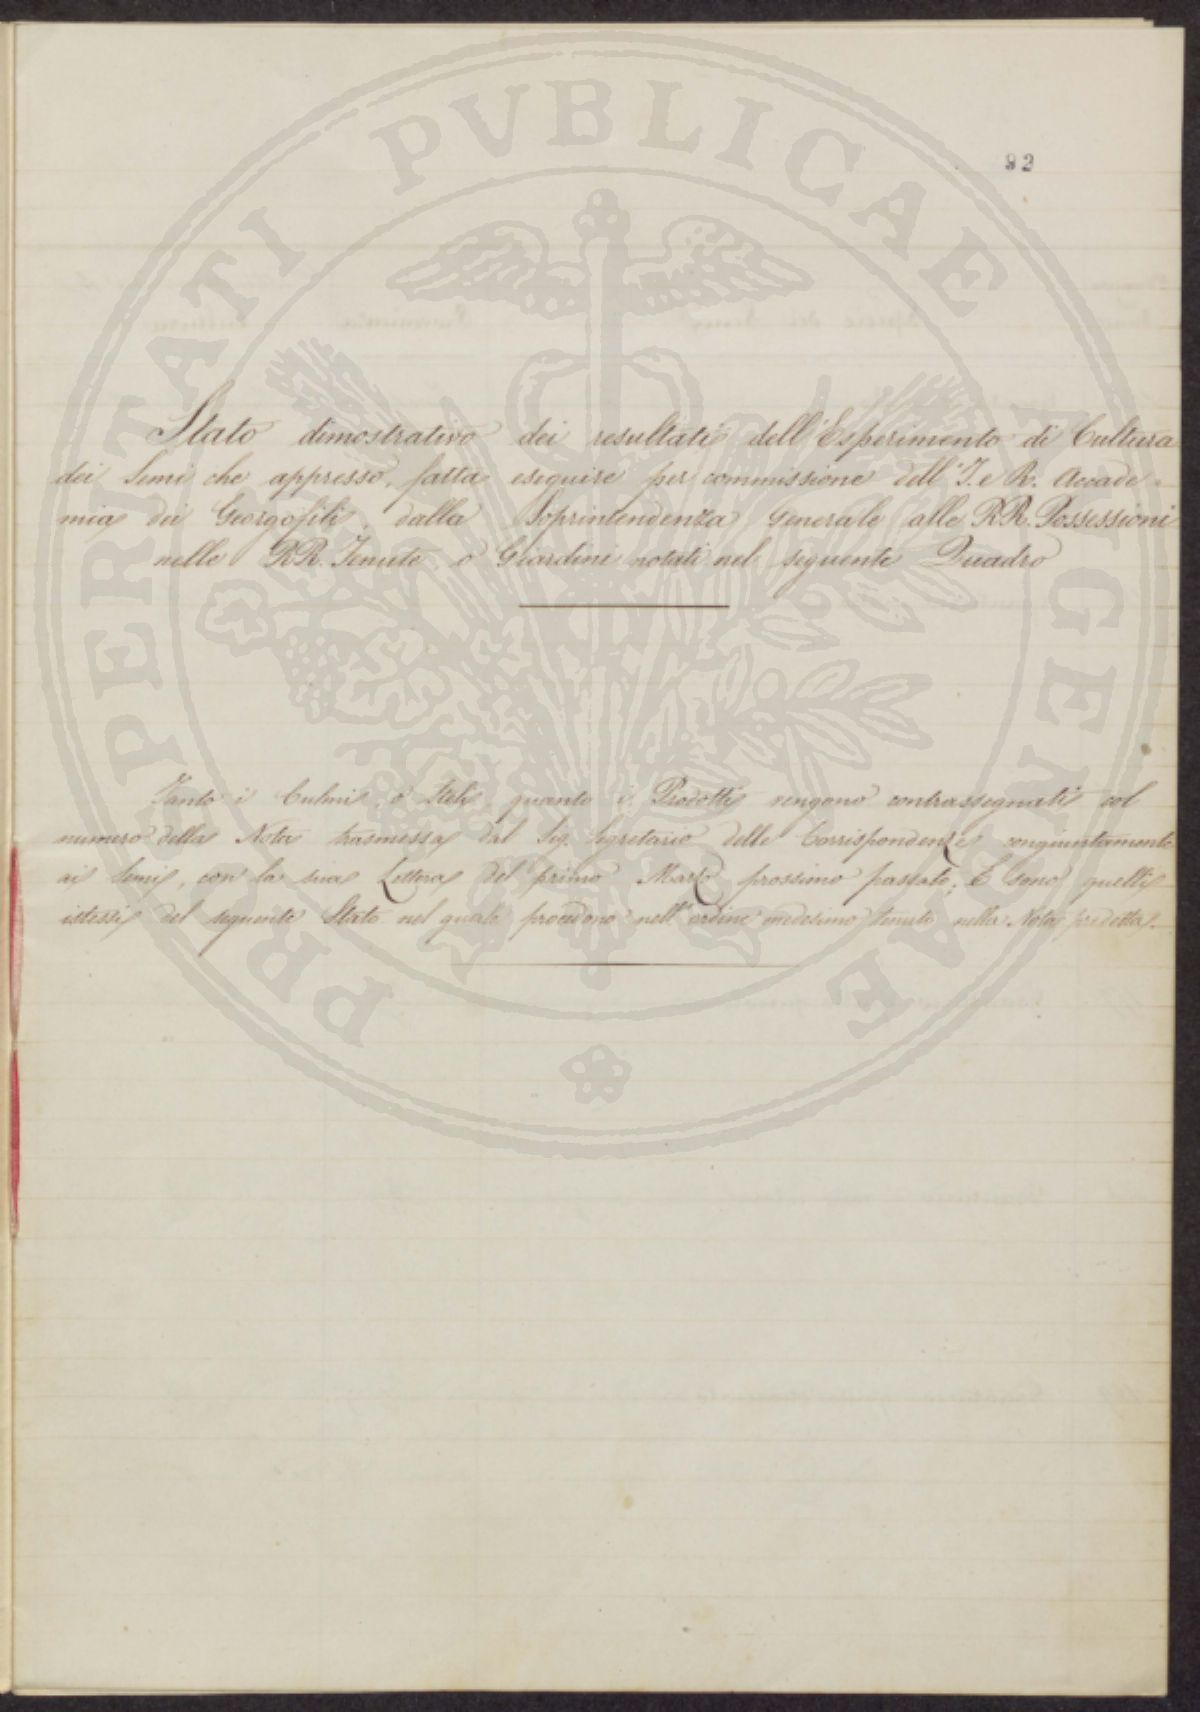 92
Stato dimostrativo dei resultati dell'Esperimento di Cultura
dei Semi che appresso, fatta eseguire per commissione dell'I. e R. Accade-
mia dei Georgofili, dalla Soprintendenza Generale alle RR. Possessioni
nelle RR. Tenute, o Giardini notati nel seguente Quadro
Tanto i Culmi, o Steli, quanto i Prodotti vengono contrassegnati col
numero della Nota trasmessa dal Sig. Segretario delle Corrispondenze congiuntamente
ai Semi, con la sua Lettera del primo Marzo prossimo passato; E sono quelli
istessi del seguente Stato nel quale procedono nell'ordine medesimo tenuto nella Nota predetta.
PROSPERITATI PVBLICAE AVGENDAE